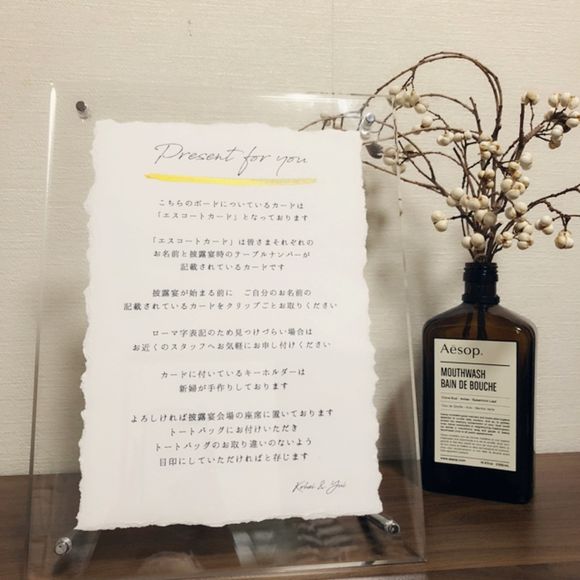 Present for you
こちらのボードについているカードは
「エスコートカード」となっております
「エスコートカード」は皆さまそれぞれの
お名前と披露宴時のテーブルナンバーが
記載されているカードです
披露宴が始まる前に ご自分のお名前の
記載されているカードをクリップごとお取りください
ローマ字表記のため見つけづらい場合は
お近くのスタッフへお気軽にお申し付けください
カードに付いているキーホルダーは
新婦が手作りしております
よろしければ披露宴会場の座席に置いております
トートバッグにお付けいただき
トートバッグのお取り違いのないよう
目印にしていただければと存じます
Kohei & Yui
Aēsop.
MOUTHWASH
BAIN DE BOUCHE
www.aesop.com